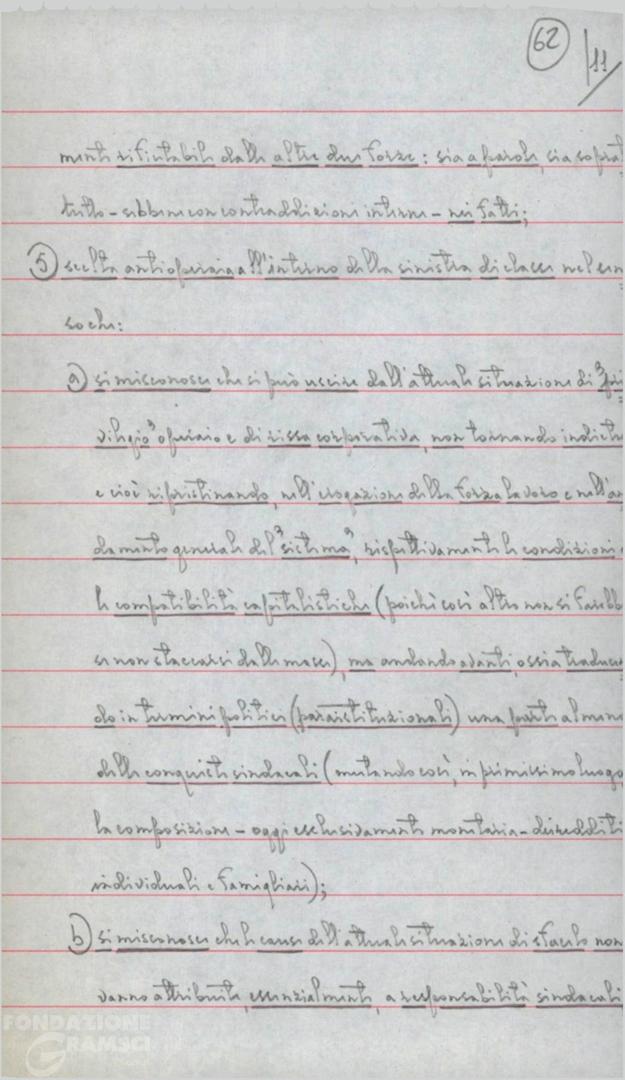 62
11
menti rifiutabili dalle altre due forze: sia a parole, sia soprat
tutto - sebbene con contraddizioni interne - nei fatti;
5) scelta antioperaia all'interno della sinistra di classe nel sen=
so che:
a) si misconosce che si può uscire dall'attuale situazione di "pri=
vilegio" operaio e di rissa corporativa, non tornando indietro
e cioè ripristinando, nell'erogazione della forza lavoro e nell'an
damento generale del "sistema", rispettivamente le condizioni e
le compatibilità capitalistiche (poiché così altro non si farebbe
se non staccarsi dalle masse), ma andando avanti, ossia traducen
do in termini politici (paraistituzionali) una parte almeno
delle conquiste sindacali (mutando così, in primissimo luogo,
la composizione - oggi esclusivamente monetaria - dei redditi
individuali e famigliari);
b) si misconosce che le cause dell'attuale situazione di sfacelo non
vanno attribuite, essenzialmente, a responsabilità sindacali
FONDAZIONE
GRAMSCI